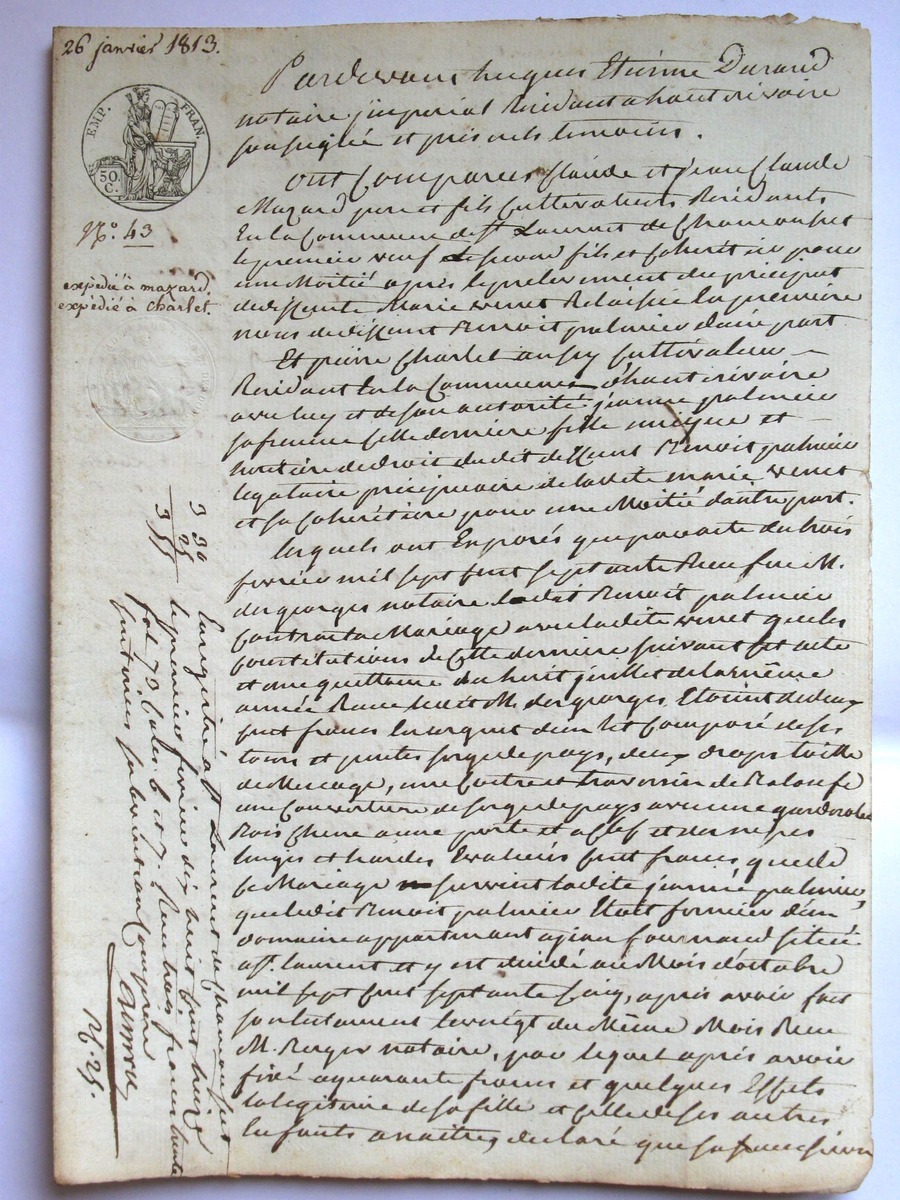 26 janvier 1813.
EMP. FRAN.
50. C.
N.° 43
expédié à mazard.
expédié à charlet.
Pardevant hugues Etienne Durand
notaire jmperial Residant a hautrivoire
soussigné et presents temoins.
Ont Comparus Claude et jean Claude
Mazard pere et fils Cultivateurs Residants
En la Commune de st Laurent de Chamousset
le premier veuf Le second fils et Coheritier pour
une Moitié après le prelevement du préciput
de deffunte Marie venet Relaissée En première
noces de deffunt Benoit palmier d'une part
Et pierre Charlet aussy Cultivateur
Residant En la Commune d'hautrivoire
avec luy et de son autorité jeanne palmier
sa femme Cette dernière fille unique et
héritière de droit du dit deffunt Benoit palmier
légataire préciputaire de ladite marie venet
et sa Cohéritière pour une Moitié d'autre part.
lesquels ont Exposés que par acte du trois
fevrier mil sept Cent septante Reçu par M.
des georges notaire Ledit Benoit palmier
Contracta Mariage avec ladite venet que les
Constitutions de Cette dernière suivant Cet acte
et une quittance du huit juillet de la même
année Reçue ledit M. des georges Etoient de deux
Cent francs En argent d'un lit Composé de ses
tours et pentes serge de pays, deux draps toille
de Menage, une Coitre et traversin de Baloufe
une Couverture de serge de pays avec une garderobe
Bois chêne a une porte et a Clef et de menus
linges et hardes Evalués Cent francs que de
Ce Mariage survint ladite jeanne palmier,
que ledit Benoit palmier Etoit fermier d'un
domaine appartenant a jean fournand situé
a st. laurent et y est décédé au Mois d'octobre
mil sept Cent septante Cinq, après avoir fait
son testament le vingt du Même Mois Reçu
M. Roger notaire, par lequel après avoir
fixé a quarante francs et quelques Effets
la légitime de sa fille et Celle de ses autres
Enfants a naitre, declaré que sa succession
3 30
25
3 55
Enregistré a st Laurent de chamousset
le premier fevrier dix huit Cent treize
fol. 73 Cases 6 et 7. Reçu trois francs trente
Centimes subvention Comprise
N. 25.